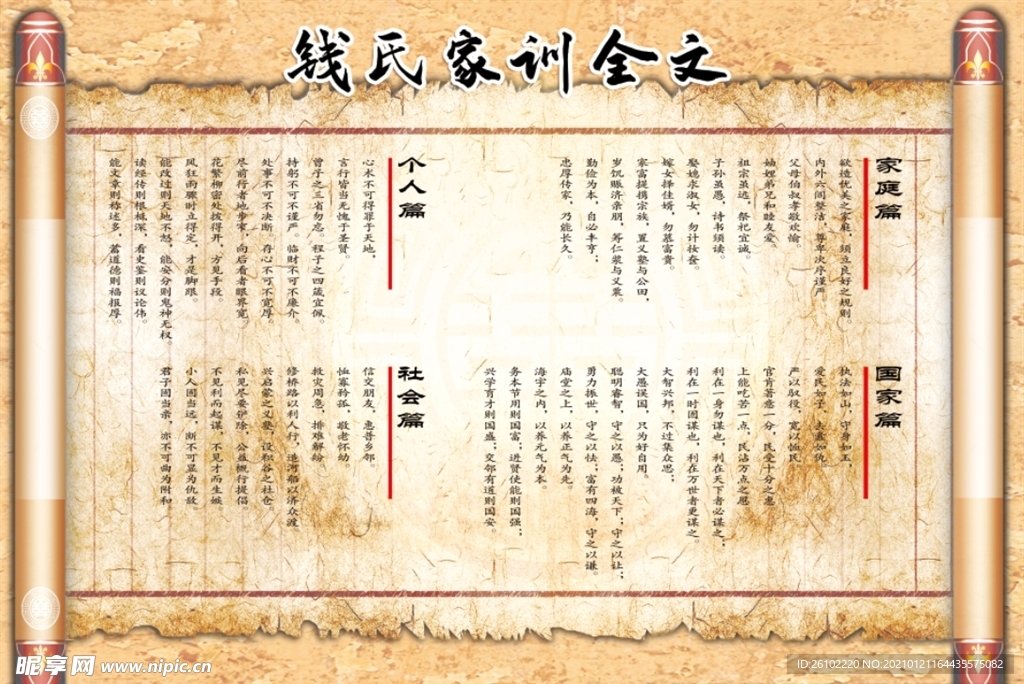 钱氏家训全文
家庭篇
欲造优美之家庭，须立良好之规则。
内外六闾整洁，尊卑次序谨严。
父母伯叔孝敬欢愉。
妯娌弟兄和睦友爱。
祖宗虽远，祭祀宜诚。
子孙虽愚，诗书须读。
娶媳求淑女，勿计妆奁。
嫁女择佳婿，勿慕富贵。
家富提携宗族，置义塾与公田，
岁饥赈济亲朋，筹仁浆与义粟。
勤俭为本，自必丰亨；
忠厚传家，乃能长久。
个人篇
心术不可得罪于天地，
言行皆当无愧于圣贤。
曾子之三省勿忘。程子之四箴宜佩。
持躬不可不谨严。临财不可不廉介。
处事不可不决断。存心不可不宽厚。
尽前行者地步窄，向后看者眼界宽。
花繁柳密处拨得开，方见手段。
风狂雨骤时立得定，才是脚跟。
能改过则天地不怒，能安分则鬼神无权
读经传则根柢深，看史鉴则议论伟。
能文章则称述多，蓄道德则福报厚。
国家篇
执法如山，守身如玉，
爱民如子，去蠹如仇
严以驭役，宽以恤民
官肯著意一分，民受十分之惠
上能吃苦一点，民沾万点之恩
利在一身勿谋也，利在天下者必谋之；
利在一时固谋也，利在万世者更谋之。
大智兴邦，不过集众思；
大愚误国，只为好自用。
聪明睿智，守之以愚；功被天下；守之以让；
勇力振世，守之以怯；富有四海，守之以谦。
庙堂之上，以养正气为先。
海宇之内，以养元气为本。
务本节用则国富；进贤使能则国强；
兴学育才则国盛；交邻有道则国安。
社会篇
信交朋友，惠普乡邻。
恤寡矜孤，敬老怀幼。
救灾周急，排难解纷
修桥路以利人行，造河船以济众渡
兴启蒙之义塾，设积谷之社仓
私见尽要铲除，公益概行提倡
不见利而起谋，不见才而生嫉
小人固当远，断不可显为仇敌
君子固当亲，亦不可曲为附和
昵享网 www.nipic.cn
ID:26102220 NO:20210121164435575082